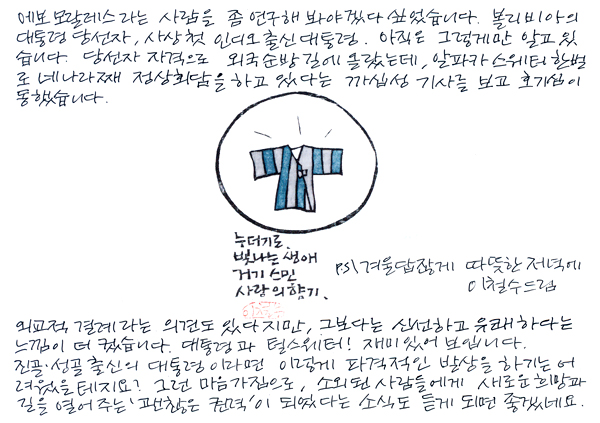 에보 모랄레스라는 사람을 좀 연구해 봐야겠다 싶었습니다. 볼리비아의
대통령 당선자, 사상 첫 인디오 출신 대통령. 아직은 그렇게만 알고 있
습니다. 당선자 자격으로 외국순방길에 올랐는데, 알파카 스웨터 한벌
로 네나라째 정상회담을 하고 있다는 까십성 기사를 보고 호기심이
동했습니다.
누더기로,
빛나는 생애
거기 스민
사랑의 향기.
ps\ 겨울답잖게 따뜻한 저녁에
이철수 드림
외교적 결례라는 의견도 있다지만, 그보다는 신선하고 유쾌하다는
느낌이 더 컸습니다. 대통령과 털스웨터! 재미있어 보입니다.
진골·성골 출신의 대통령이라면 이렇게 파격적인 발상을 하기는 어
려웠을테지요? 그런 마음가짐으로, 소외된 사람들에게 새로운 희망과
길을 열어주는 '괜찮은 권력'이 되었다는 소식도 듣게 되면 좋겠네요.